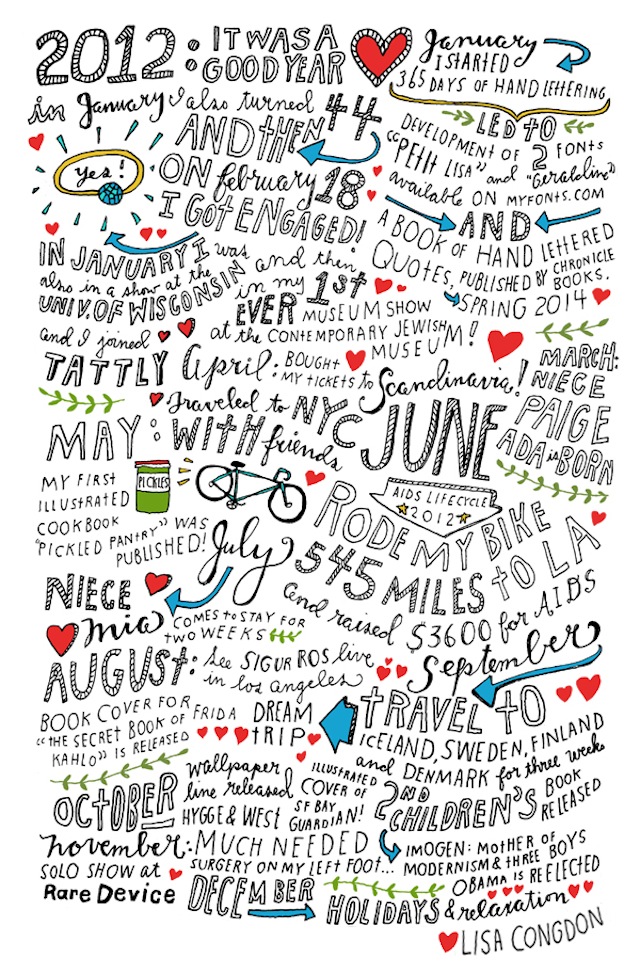 2012: IT WAS A GOOD YEAR
January I STARTED
365 DAYS OF HAND LETTERING
LED TO
DEVELOPMENT OF 2 FONTS
"PETIT LISA" and "Geraldine"
available ON MYFONTS.COM
AND
A BOOK OF HAND LETTERED
QUOTES, PUBLISHED BY CHRONICLE BOOKS.
SPRING 2014
in January I also turned 44
yes!
AND THEN
ON february 18
I GOT ENGAGED!
IN JANUARY I was
also in a show at the
UNIV. OF WISCONSIN
and then
in my 1ST
EVER MUSEUM SHOW
at the CONTEMPORARY JEWISH
MUSEUM!
and I joined
TATTLY
April: BOUGHT
MY TICKETS to
Scandinavia!
MARCH:
NIECE
PAIGE
ADA is BORN
MAY: traveled to NYC
WITH friends
MY FIRST
ILLUSTRATED
COOKBOOK
"PICKLED PANTRY" WAS
PUBLISHED!
PICKLES
JUNE
AIDS LIFECYCLE
2012
RODE MY BIKE
545 MILES to LA
and raised $3600 for AIDS
July
NIECE
mia COMES to STAY FOR
two WEEKS
AUGUST: see SIGUR ROS live
in los Angeles
BOOK COVER FOR
"THE SECRET BOOK OF FRIDA
KAHLO" IS RELEASED
September
DREAM
tRIP
tRAVEL tO
ICELAND, SWEDEN, FINLAND
and DENMARK for three weeks
OCTOBER
wallpaper
line released
HYGGE & WEST
ILLUSTRATED
COVER OF
SF BAY
GUARDIAN!
2ND
CHILDREN'S BOOK
RELEASED
IMOGEN: MOTHER OF
MODERNISM & THREE BOYS
november: MUCH NEEDED
SURGERY ON MY LEFT FOOT...
SOLO SHOW at
Rare Device
OBAMA IS REELECTED
DECEMBER
HOLIDAYS & relaxation
LISA CONGDON